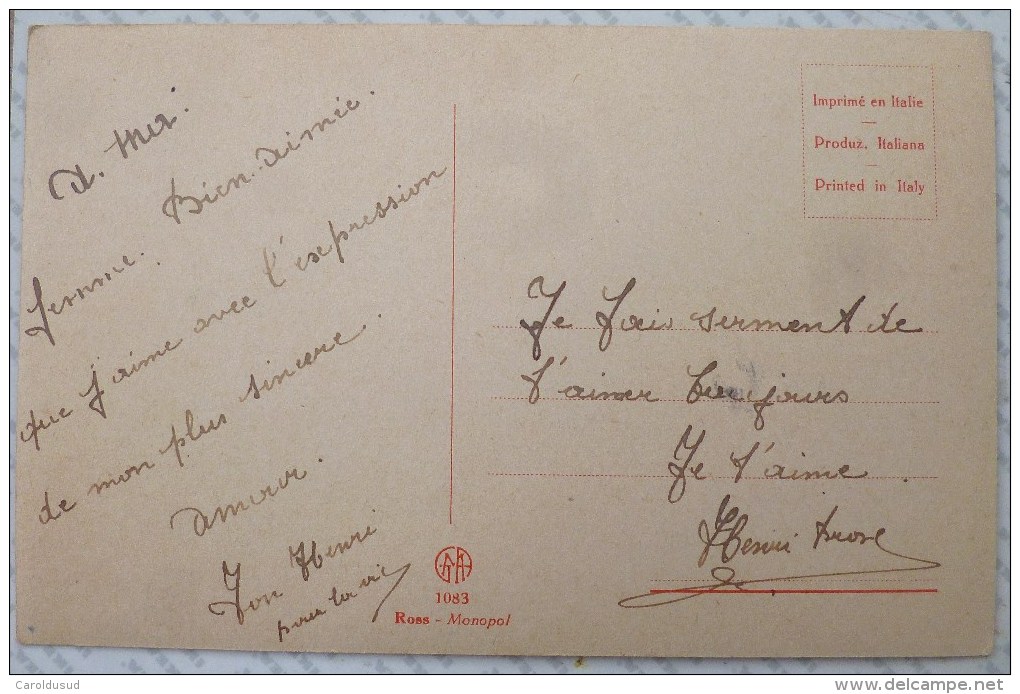 A. ma
femme. Bien-aimée.
que j'aime avec l'expression
de mon plus sincere.
amour.
Ton Henri
pour la vie
GRA
1083
Ross - Monopol
Imprimé en Italie
Produz. Italiana
Printed in Italy
Je fais serment de
t'aimer toujours
Je t'aime
Henri
Caroldusud
www.delcampe.net